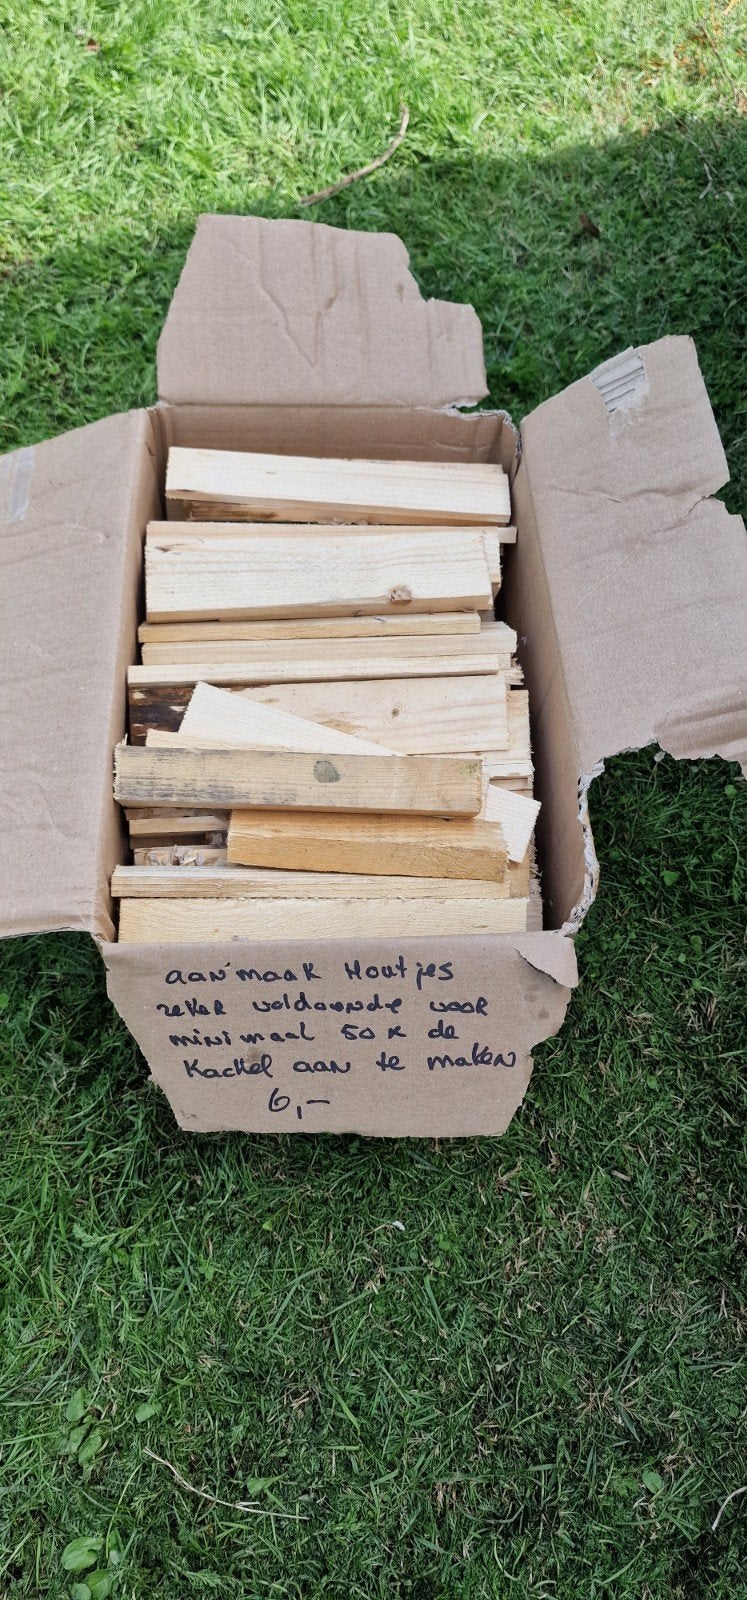 aanmaak Houtjes
zeker voldoende voor
minimaal 50 x de
Kachel aan te maken
6,-